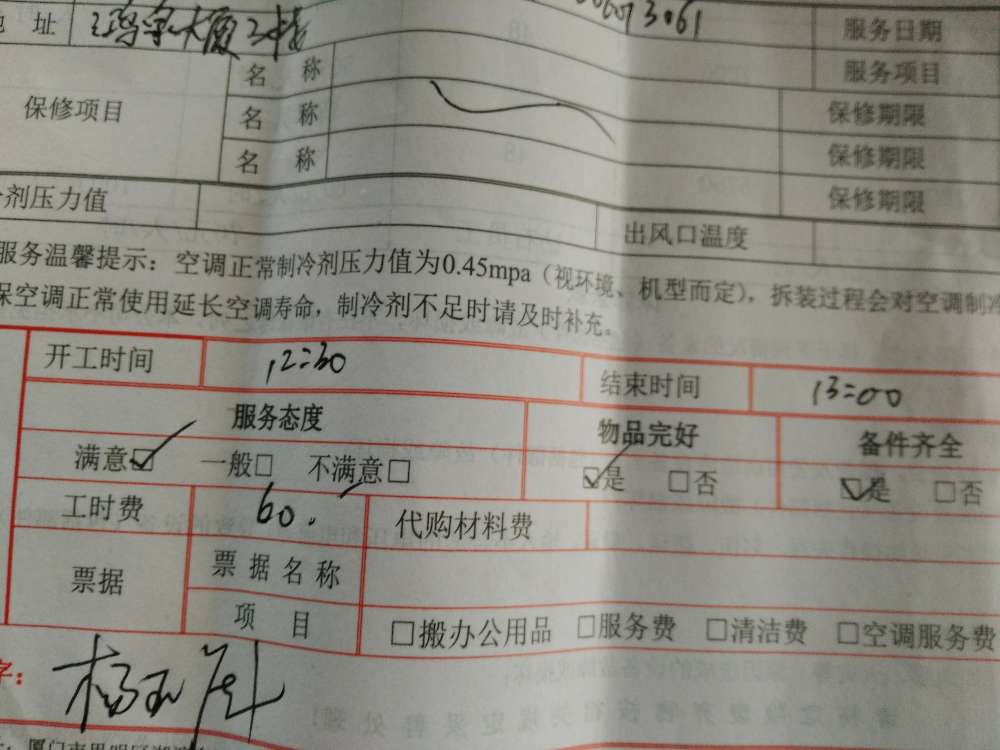 址 大厦3栋 3061 服务日期
名称 服务项目
保修项目 名称 保修期限
名称 保修期限
剂压力值 保修期限
出风口温度
服务温馨提示：空调正常制冷剂压力值为0.45mpa（视环境、机型而定），拆装过程会对空调制冷
保空调正常使用延长空调寿命，制冷剂不足时请及时补充。
开工时间 12:30 结束时间 13:00
服务态度 物品完好 备件齐全
满意☑ 一般□ 不满意□ ☑是 □否 ☑是 □否
工时费 60. 代购材料费
票据 票据名称
项目 □搬办公用品 □服务费 □清洁费 □空调服务费
字：杨